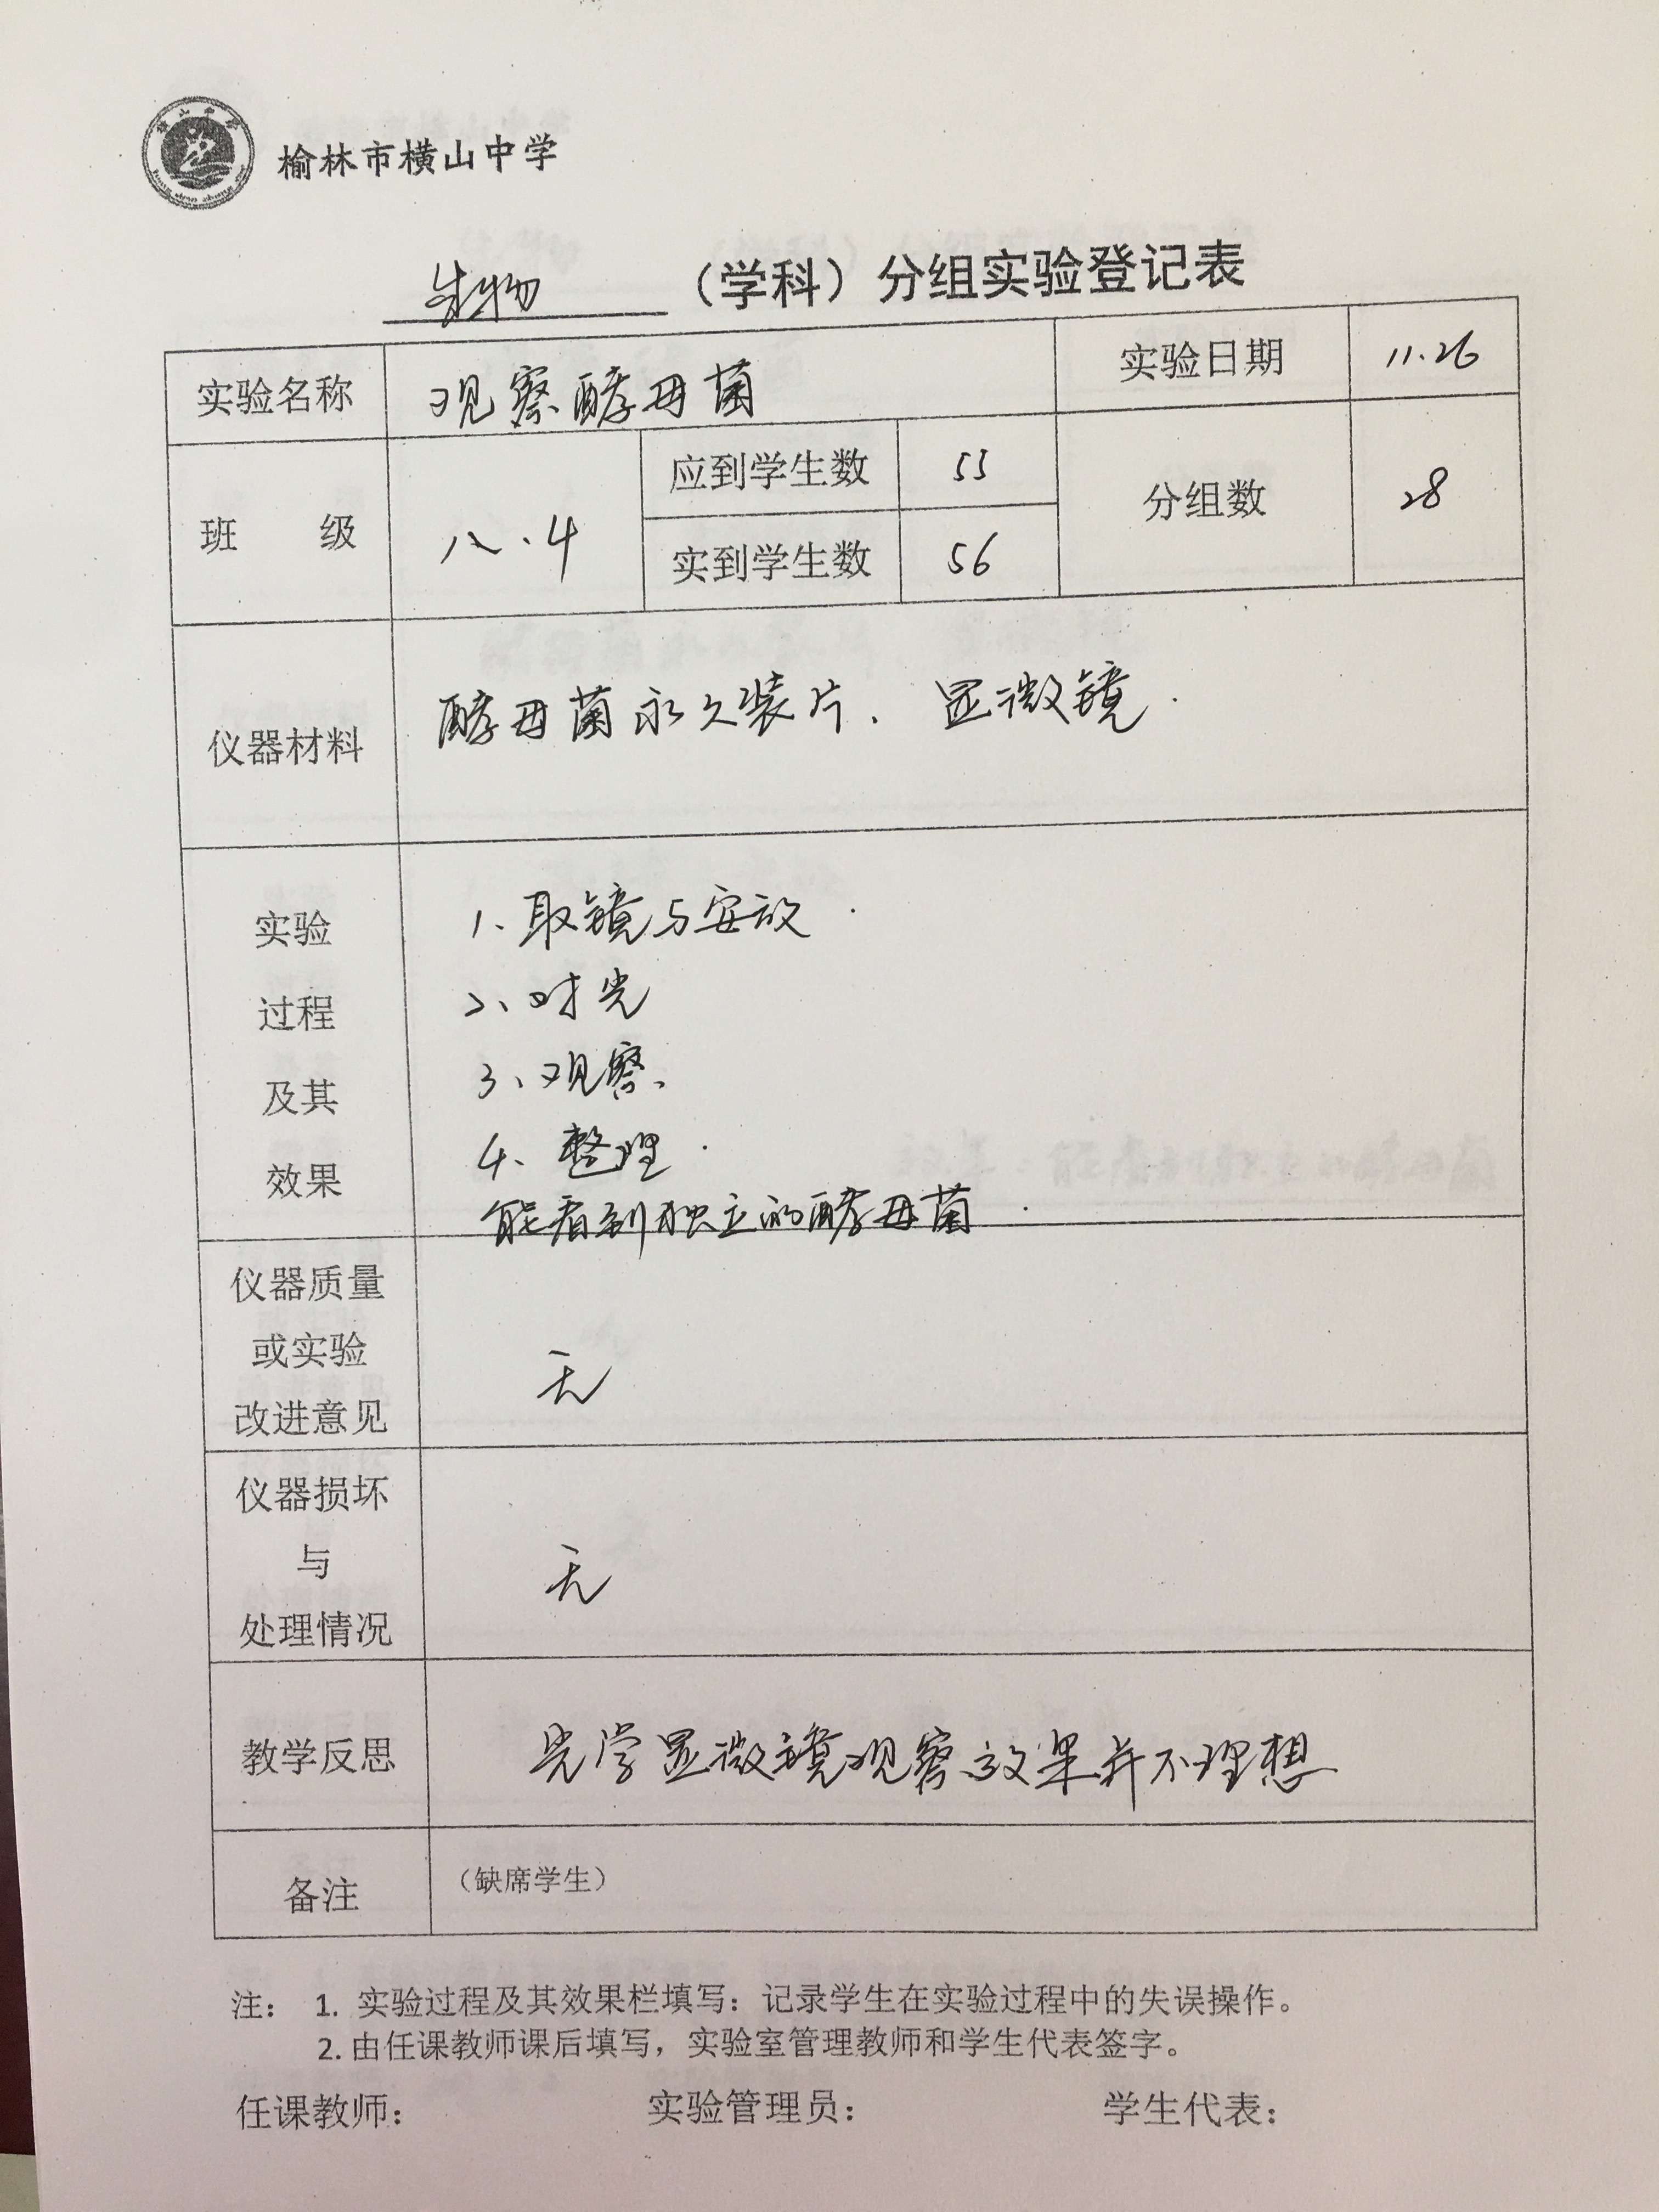 榆林市横山中学
生物（学科）分组实验登记表
实验名称 观察酵母菌 实验日期 11.26
班 级 八.4 应到学生数 55 分组数 28
实到学生数 56
仪器材料 酵母菌永久装片、显微镜.
实验
过程
及其
效果
1、取镜与安放.
2、对光
3、观察、
4、整理.
能看到独立的酵母菌.
仪器质量
或实验
改进意见
无
仪器损坏
与
处理情况
无
教学反思 光学显微镜观察效果并不理想
备注 （缺席学生）
注： 1. 实验过程及其效果栏填写：记录学生在实验过程中的失误操作。
2. 由任课教师课后填写，实验室管理教师和学生代表签字。
任课教师： 实验管理员： 学生代表：